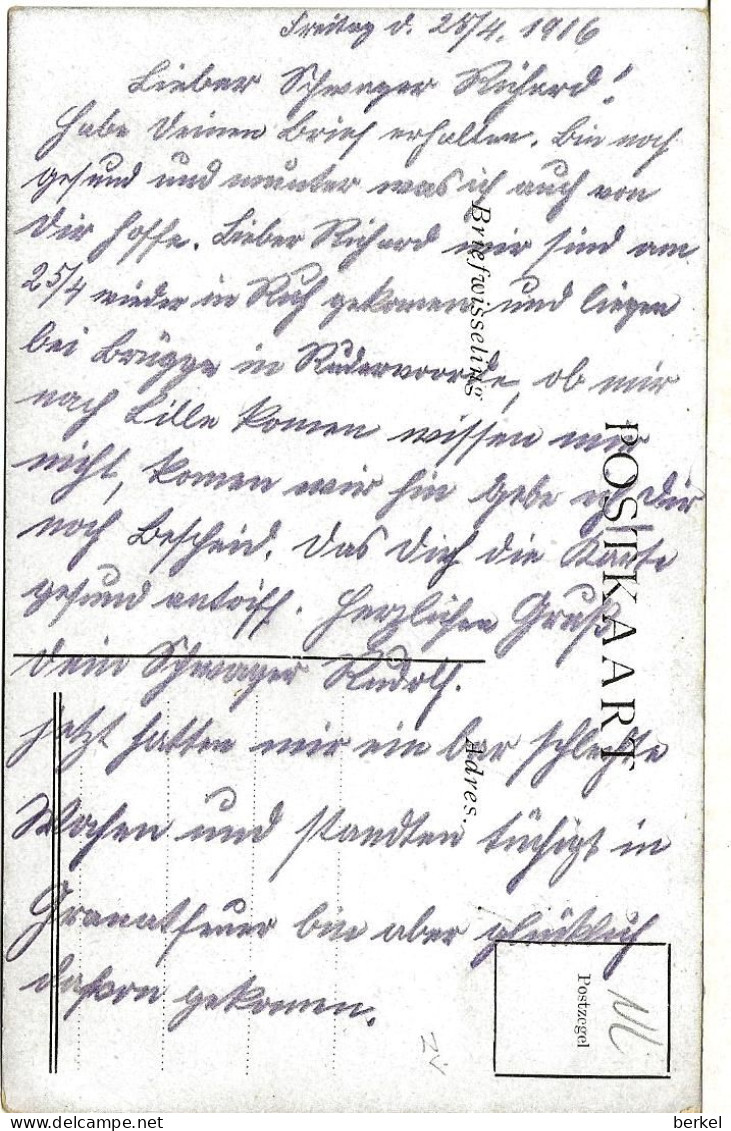 Freitag d. 28/4. 1916
Lieber Schwager Richard!
Habe deinen Brief erhalten. Bin noch
gesund und munter was ich auch von
dir hoffe. Lieber Richard wir sind am
25/4 wieder in Ruh gekomen und liegen
bei Brügge in Ruddervoorde, ob wir
nach Lille komen wissen wir
nicht, komen wir hin gebe ich Dir
noch Bescheid. Das Dich die Karte
gesund antrift. Herzlichen Gruß
dein Schwager Rudolf.
Jetzt hatten wir ein bar schlechte
Wochen und standten tüchigt in
Granatfeuer bin aber glücklich
davon gekomen.
Briefwisseling
POSTKAART
Adres.
Postzegel
ZV
berkel